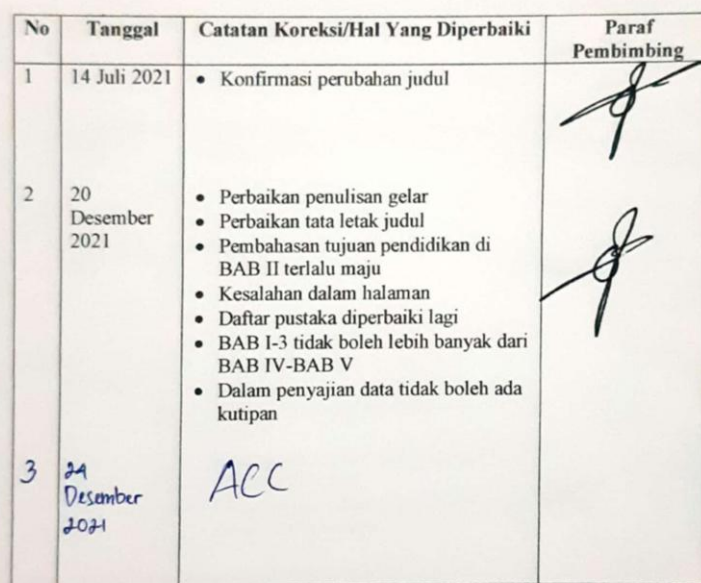 No Tanggal Catatan Koreksi/Hal Yang Diperbaiki Paraf
Pembimbing
1 14 Juli 2021 • Konfirmasi perubahan judul
2 20 • Perbaikan penulisan gelar
Desember • Perbaikan tata letak judul
2021 • Pembahasan tujuan pendidikan di
BAB II terlalu maju
• Kesalahan dalam halaman
• Daftar pustaka diperbaiki lagi
• BAB I-3 tidak boleh lebih banyak dari
BAB IV-BAB V
• Dalam penyajian data tidak boleh ada
kutipan
3 24 ACC
Desember
2021